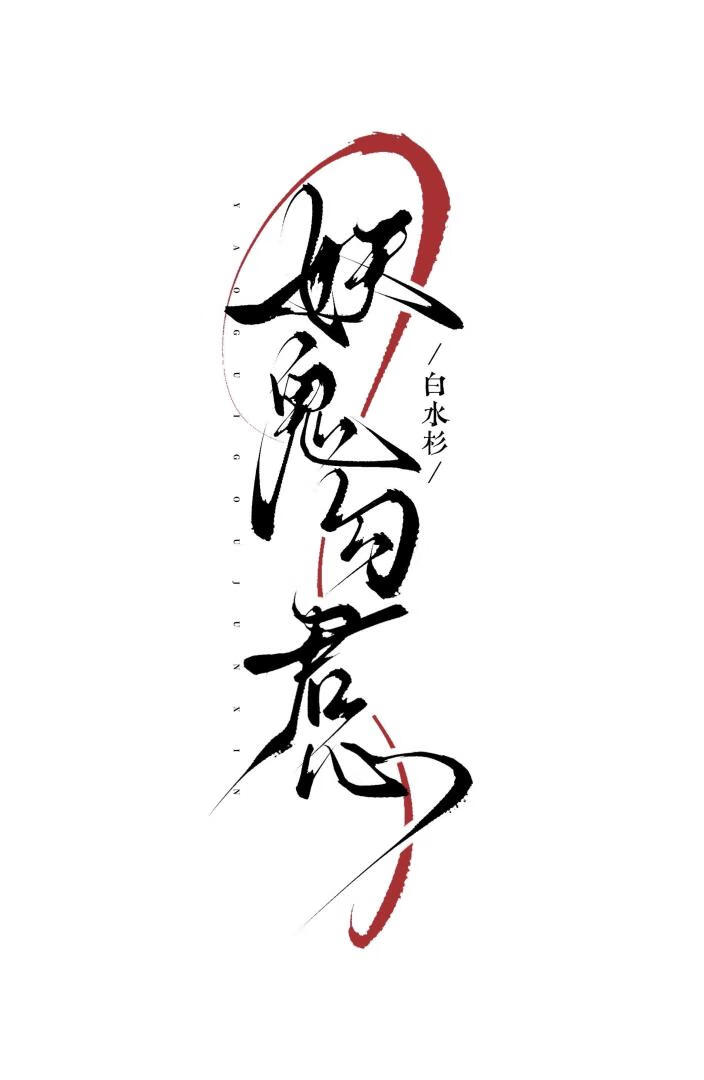 妖鬼勾君心
/白水杉/
YAOGUIGOUJUNXIN